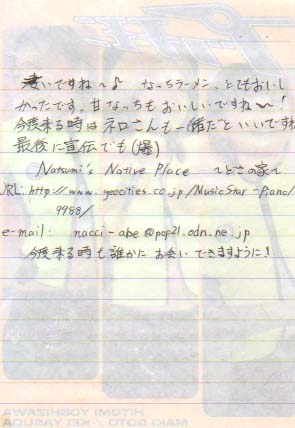 凄いですね〜♪ なっちラーメン、とてもおいし
かったです。甘なっちもおいしいですね〜!
今度来る時はネロさんも一緒だといいですね
最後に宣伝でも(爆)
Natsumi's Native Place 〜とさの家〜
URL:http://www.geocities.co.jp/MusicStar-Piano/
9988/
e-mail: nacci-abe@pop21.odn.ne.jp
今度来る時も誰かにお会いできますように!
HITOMI YOSHIZAWA
MAKI GOTO / KEI YASUDA